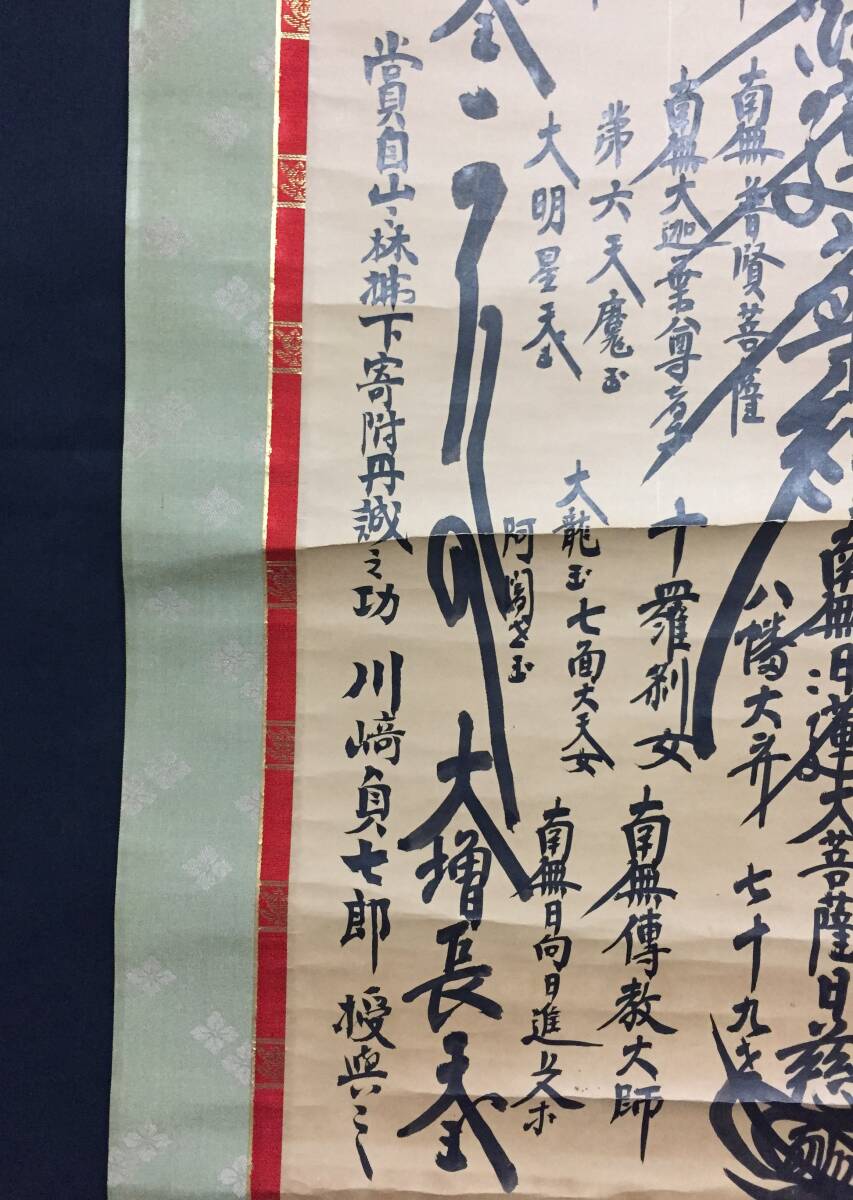 南無日蓮大菩薩日慈
南無普賢菩薩
八幡大
七十九才
南無大迦葉尊者
十羅刹女
南無傳教大師
第六天魔王
大龍王
七面大天女
大明星天王
阿闍世王
南無日向日進
大増長天王
賞自山林拂下寄附丹誠之功
川﨑貞七郎
授與之